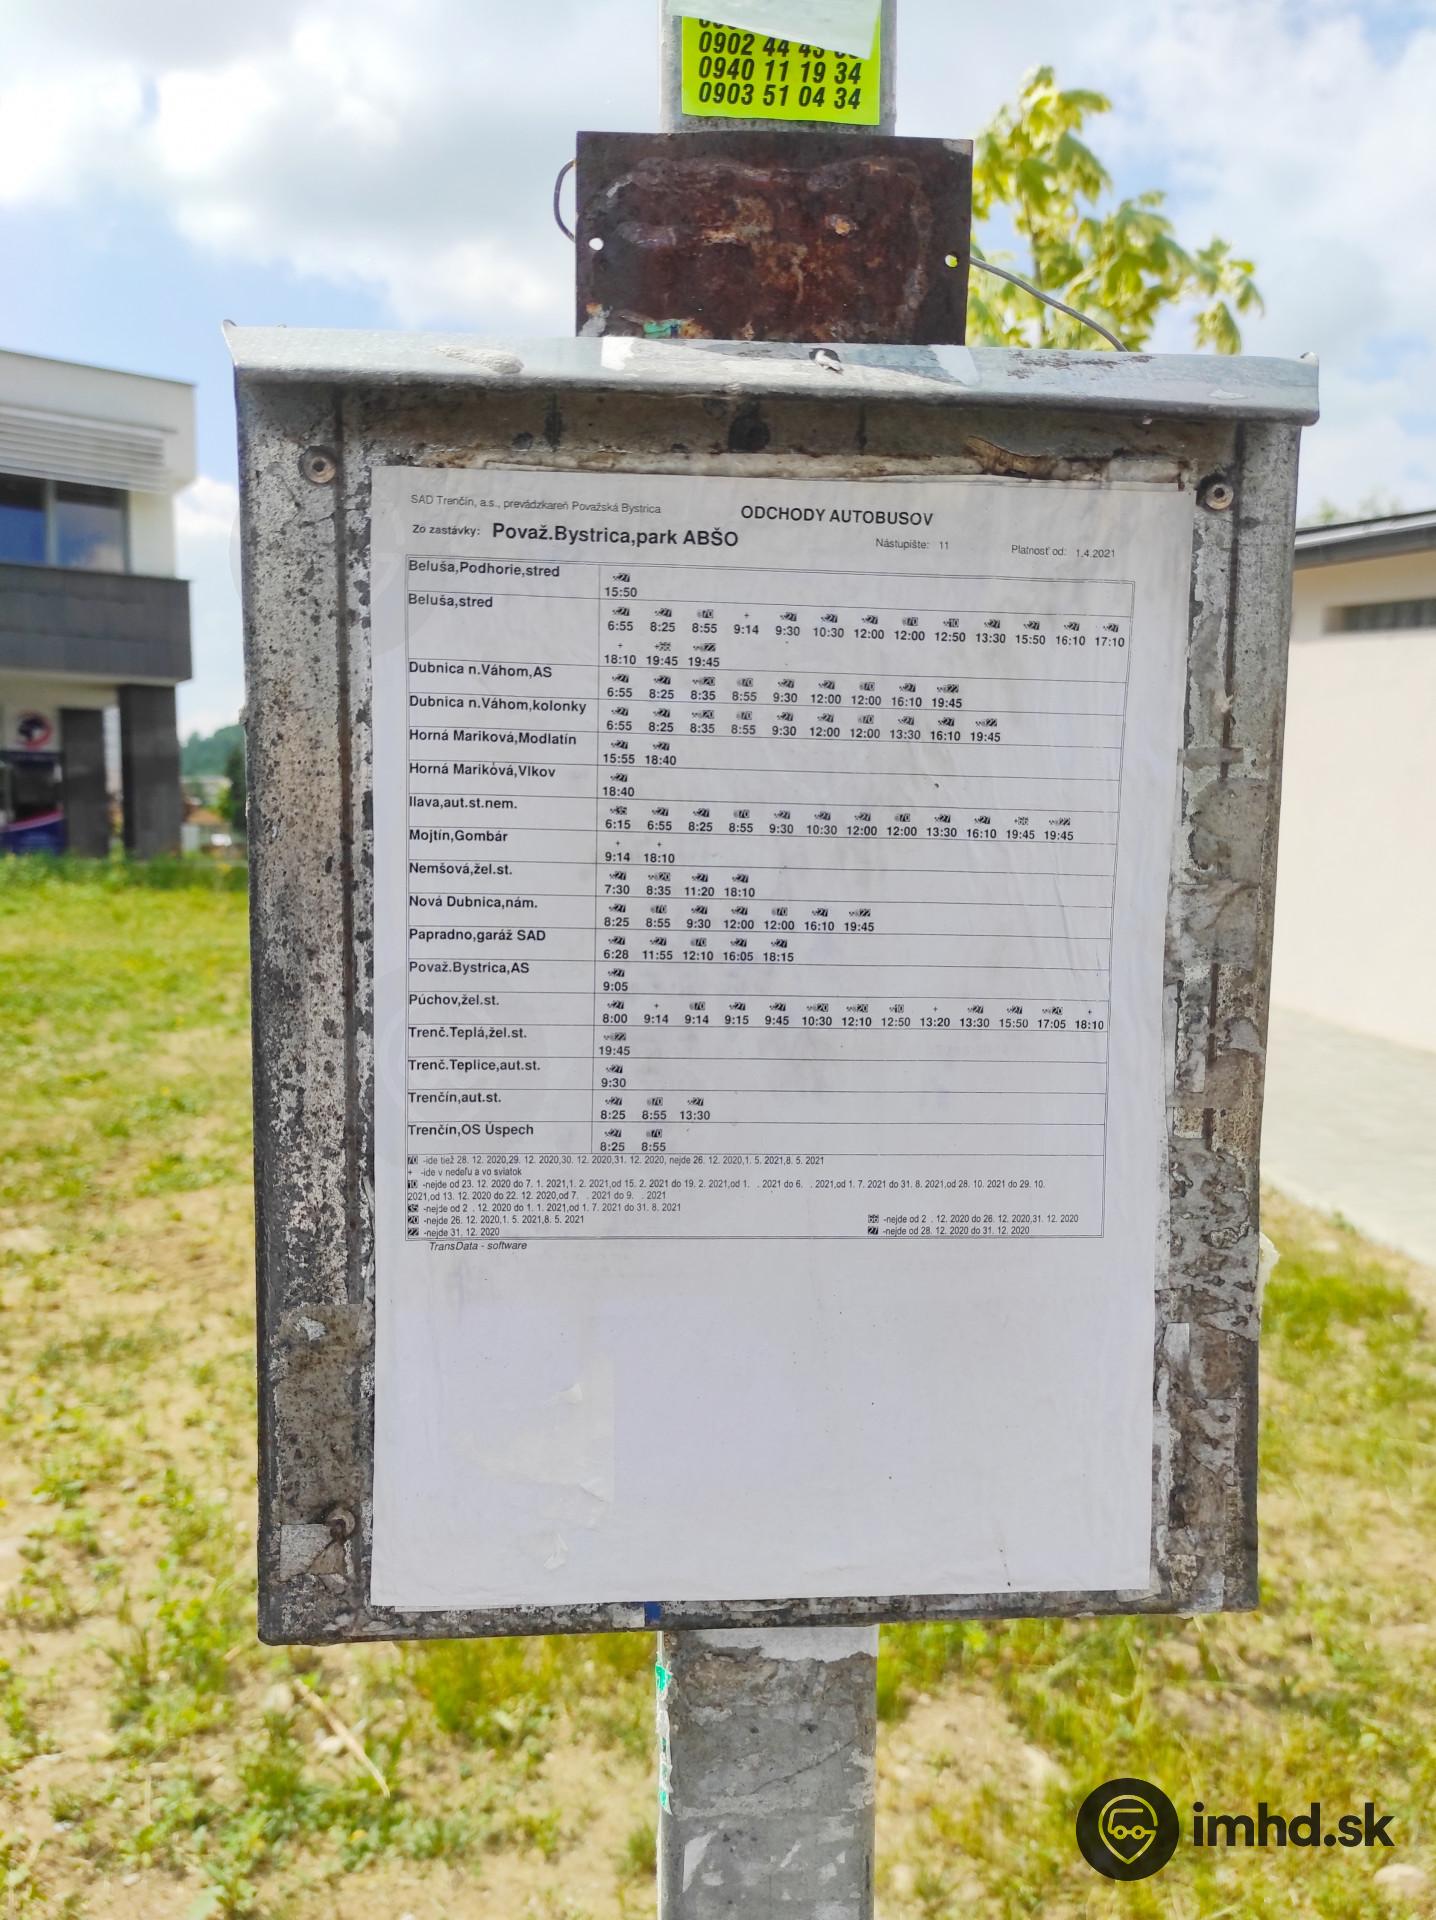 0902 44 43
0940 11 19 34
0903 51 04 34
SAD Trenčín, a.s., prevádzkareň Považská Bystrica
ODCHODY AUTOBUSOV
Zo zastávky: Považ.Bystrica,park ABŠO
Nástupište: 11
Platnosť od: 1.4.2021
Beluša,Podhorie,stred
15:50
Beluša,stred
6:55 8:25 8:55 9:14 9:30 10:30 12:00 12:00 12:50 13:30 15:50 16:10 17:10
18:10 19:45 19:45
Dubnica n.Váhom,AS
6:55 8:25 8:35 8:55 9:30 12:00 12:00 16:10 19:45
Dubnica n.Váhom,kolonky
6:55 8:25 8:35 8:55 9:30 12:00 12:00 13:30 16:10 19:45
Horná Mariková,Modlatín
15:55 18:40
Horná Mariková,Vlkov
18:40
Ilava,aut.st.nem.
6:15 6:55 8:25 8:55 9:30 10:30 12:00 12:00 13:30 16:10 19:45 19:45
Mojtín,Gombár
+ +
9:14 18:10
Nemšová,žel.st.
7:30 8:35 11:20 18:10
Nová Dubnica,nám.
8:25 8:55 9:30 12:00 12:00 16:10 19:45
Papradno,garáž SAD
6:28 11:55 12:10 16:05 18:15
Považ.Bystrica,AS
9:05
Púchov,žel.st.
8:00 9:14 9:14 9:15 9:45 10:30 12:10 12:50 13:20 13:30 15:50 17:05 18:10
Trenč.Teplá,žel.st.
19:45
Trenč.Teplice,aut.st.
9:30
Trenčín,aut.st.
8:25 8:55 13:30
Trenčín,OS Úspech
8:25 8:55
70 -ide tiež 28. 12. 2020,29. 12. 2020,30. 12. 2020,31. 12. 2020, nejde 26. 12. 2020,1. 5. 2021,8. 5. 2021
+ -ide v nedeľu a vo sviatok
10 -nejde od 23. 12. 2020 do 7. 1. 2021,1. 2. 2021,od 15. 2. 2021 do 19. 2. 2021,od 1. . 2021 do 6. . 2021,od 1. 7. 2021 do 31. 8. 2021,od 28. 10. 2021 do 29. 10.
2021,od 13. 12. 2020 do 22. 12. 2020,od 7. . 2021 do 9. . 2021
-nejde od 2 . 12. 2020 do 1. 1. 2021,od 1. 7. 2021 do 31. 8. 2021
20 -nejde 26. 12. 2020,1. 5. 2021,8. 5. 2021
-nejde od 2 . 12. 2020 do 26. 12. 2020,31. 12. 2020
22 -nejde 31. 12. 2020
27 -nejde od 28. 12. 2020 do 31. 12. 2020
TransData - software
imhd.sk